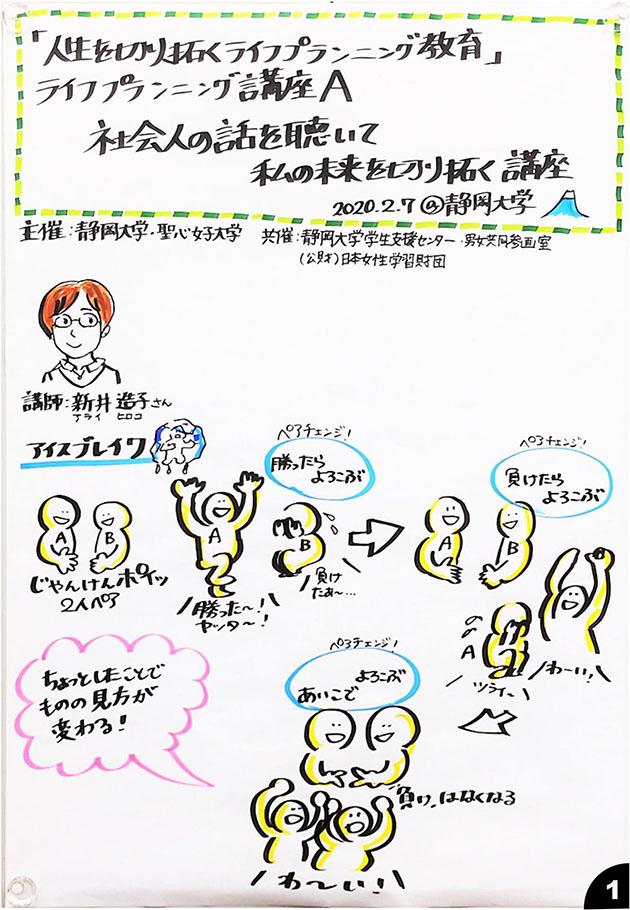 「人生を切り拓くライフプランニング教育」
ライフプランニング講座A
社会人の話を聴いて
私の未来を切り拓く講座
2020.2.7@静岡大学
主催：静岡大学・聖心女子大学
共催：静岡大学学生支援センター・男女共同参画室
(公財)日本女性学習財団
講師：新井浩子さん
アライ ヒロコ
アイスブレイク
ペアチェンジ！
勝ったら
よろこぶ
ペアチェンジ！
負けたら
よろこぶ
A
B
じゃんけんポイッ
2人ペア
A
勝った〜！
ヤッター！
B
負け
たぁ〜…
A
B
A
ツライ〜
B
わーい！
ちょっとしたことで
ものの見方が
変わる！
ペアチェンジ！
よろこぶ
あいこで
"負け"はなくなる
わ〜い！
1